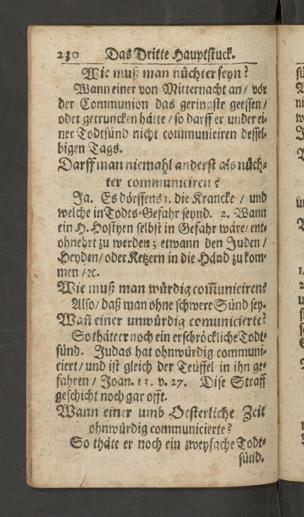 230 Das Dritte Hauptstuck.
Wie muß man nüchter seyn?
Wann einer von Mitternacht an / vor
der Communion das geringste geessen /
oder getruncken hätte / so darff er under ei-
ner Todtsünd nicht communicieren dessel-
bigen Tags.
Darff man niemahl anderst als nüch-
ter communiciren?
Ja. Es dörffens 1. die Krancke / und
welche in Todts-Gefahr seynd. 2. Wann
ein H. Hostyen selbst in Gefahr wäre / ent-
ohnehrt zu werden; etwann den Juden /
Heyden / oder Ketzern in die Händ zu kom-
men / ꝛc.
Wie muß man würdig com̃uniciren?
Also / daß man ohne schwere Sünd sey.
Wañ einer unwürdig comunicierte?
So thäte er noch ein erschröckliche Todt-
sünd. Judas hat ohnwürdig communi-
ciert / und ist gleich der Teüffel in ihn ge-
fahren / Joan. 13. v. 27. Dise Straff
geschicht noch gar offt.
Wann einer umb Oesterliche Zeit
ohnwürdig communicierte?
So thäte er noch ein zweyfache Todt-
sünd.